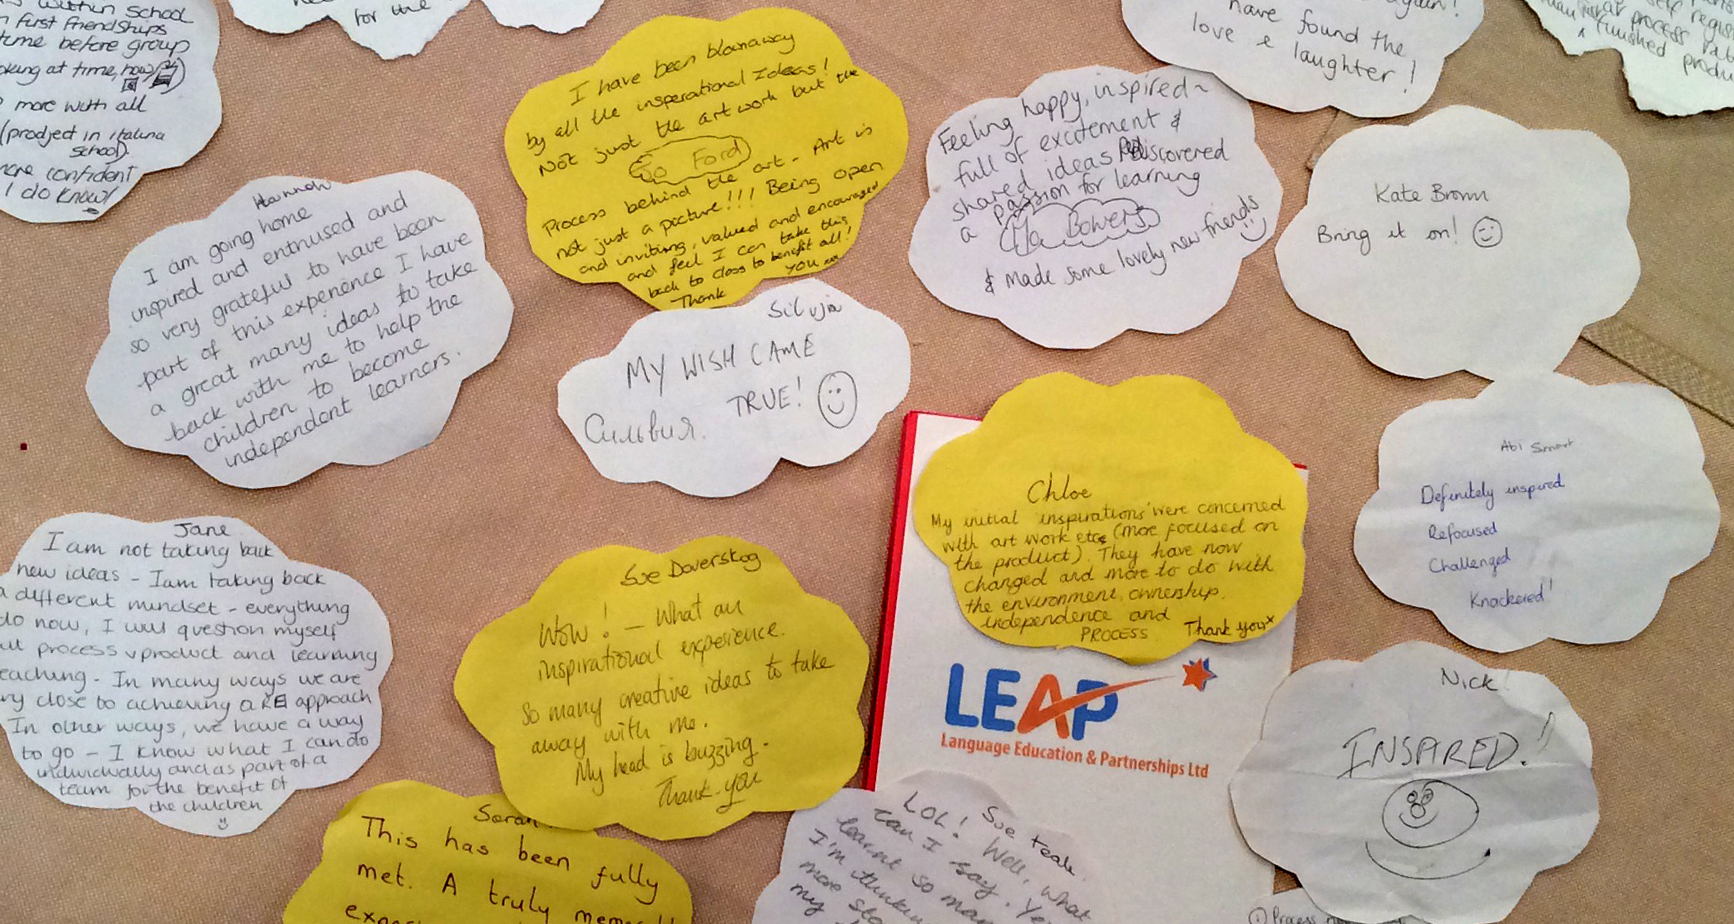 within school
first friendships
time before group
at time, how
more with all
(prodject in italina
school).
more confident
I do know!
for the
have found the
love & laughter!
process
finished
I have been blownaway
by all the insperational Ideas!
Not just the art work but the
Jo Ford
Process behind the art - Art is
not just a picture!!! Being open
and inviting, valued and encouraged
and feel I can take this
back to class to benefit all!
Thank you
Feeling happy, inspired ~
full of excitement &
shared ideas Rediscovered
a passion for learning
Bowers
& made some lovely new friends
Kate Brown
Bring it on!
Hannah
I am going home
inspired and enthused and
so very grateful to have been
part of this experience I have
a great many ideas to take
back with me to help the
children to become
independent learners.
Silvija
MY WISH CAME
TRUE!
Сильвия.
Chloe
My initial inspirations were concerned
with art work etc (more focused on
the product). They have now
changed and more to do with
the environment, ownership,
independence and
PROCESS Thank you x
Abi Smart
Definitely inspired
Refocused
Challenged
Knackered!
Jane
I am not taking back
new ideas - I am taking back
a different mindset - everything
do now, I will question myself
process v product and learning
In many ways we are
close to achieving a RE approach
In other ways, we have a way
to go - I know what I can do
individually and as part of a
team for the benefit of
the children
Sue Doverskog
Wow! - What an
inspirational experience.
So many creative ideas to take
away with me.
My head is buzzing.
Thank-you
LEAP
Language Education & Partnerships Ltd
Nick
INSPIRED!
Sarah
This has been fully
met. A truly
Sue Teale.
LOL! Well, what
can I say. Yes
learnt so
I'm
more
my
Process